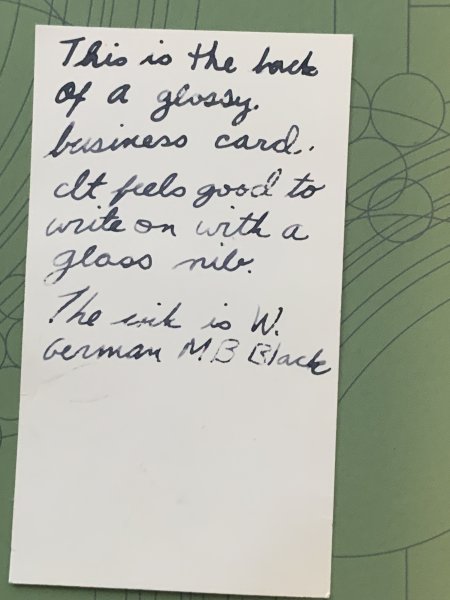 This is the back
of a glossy.
business card.
It feels good to
write on with a
glass nib.
The ink is W.
German MB Black